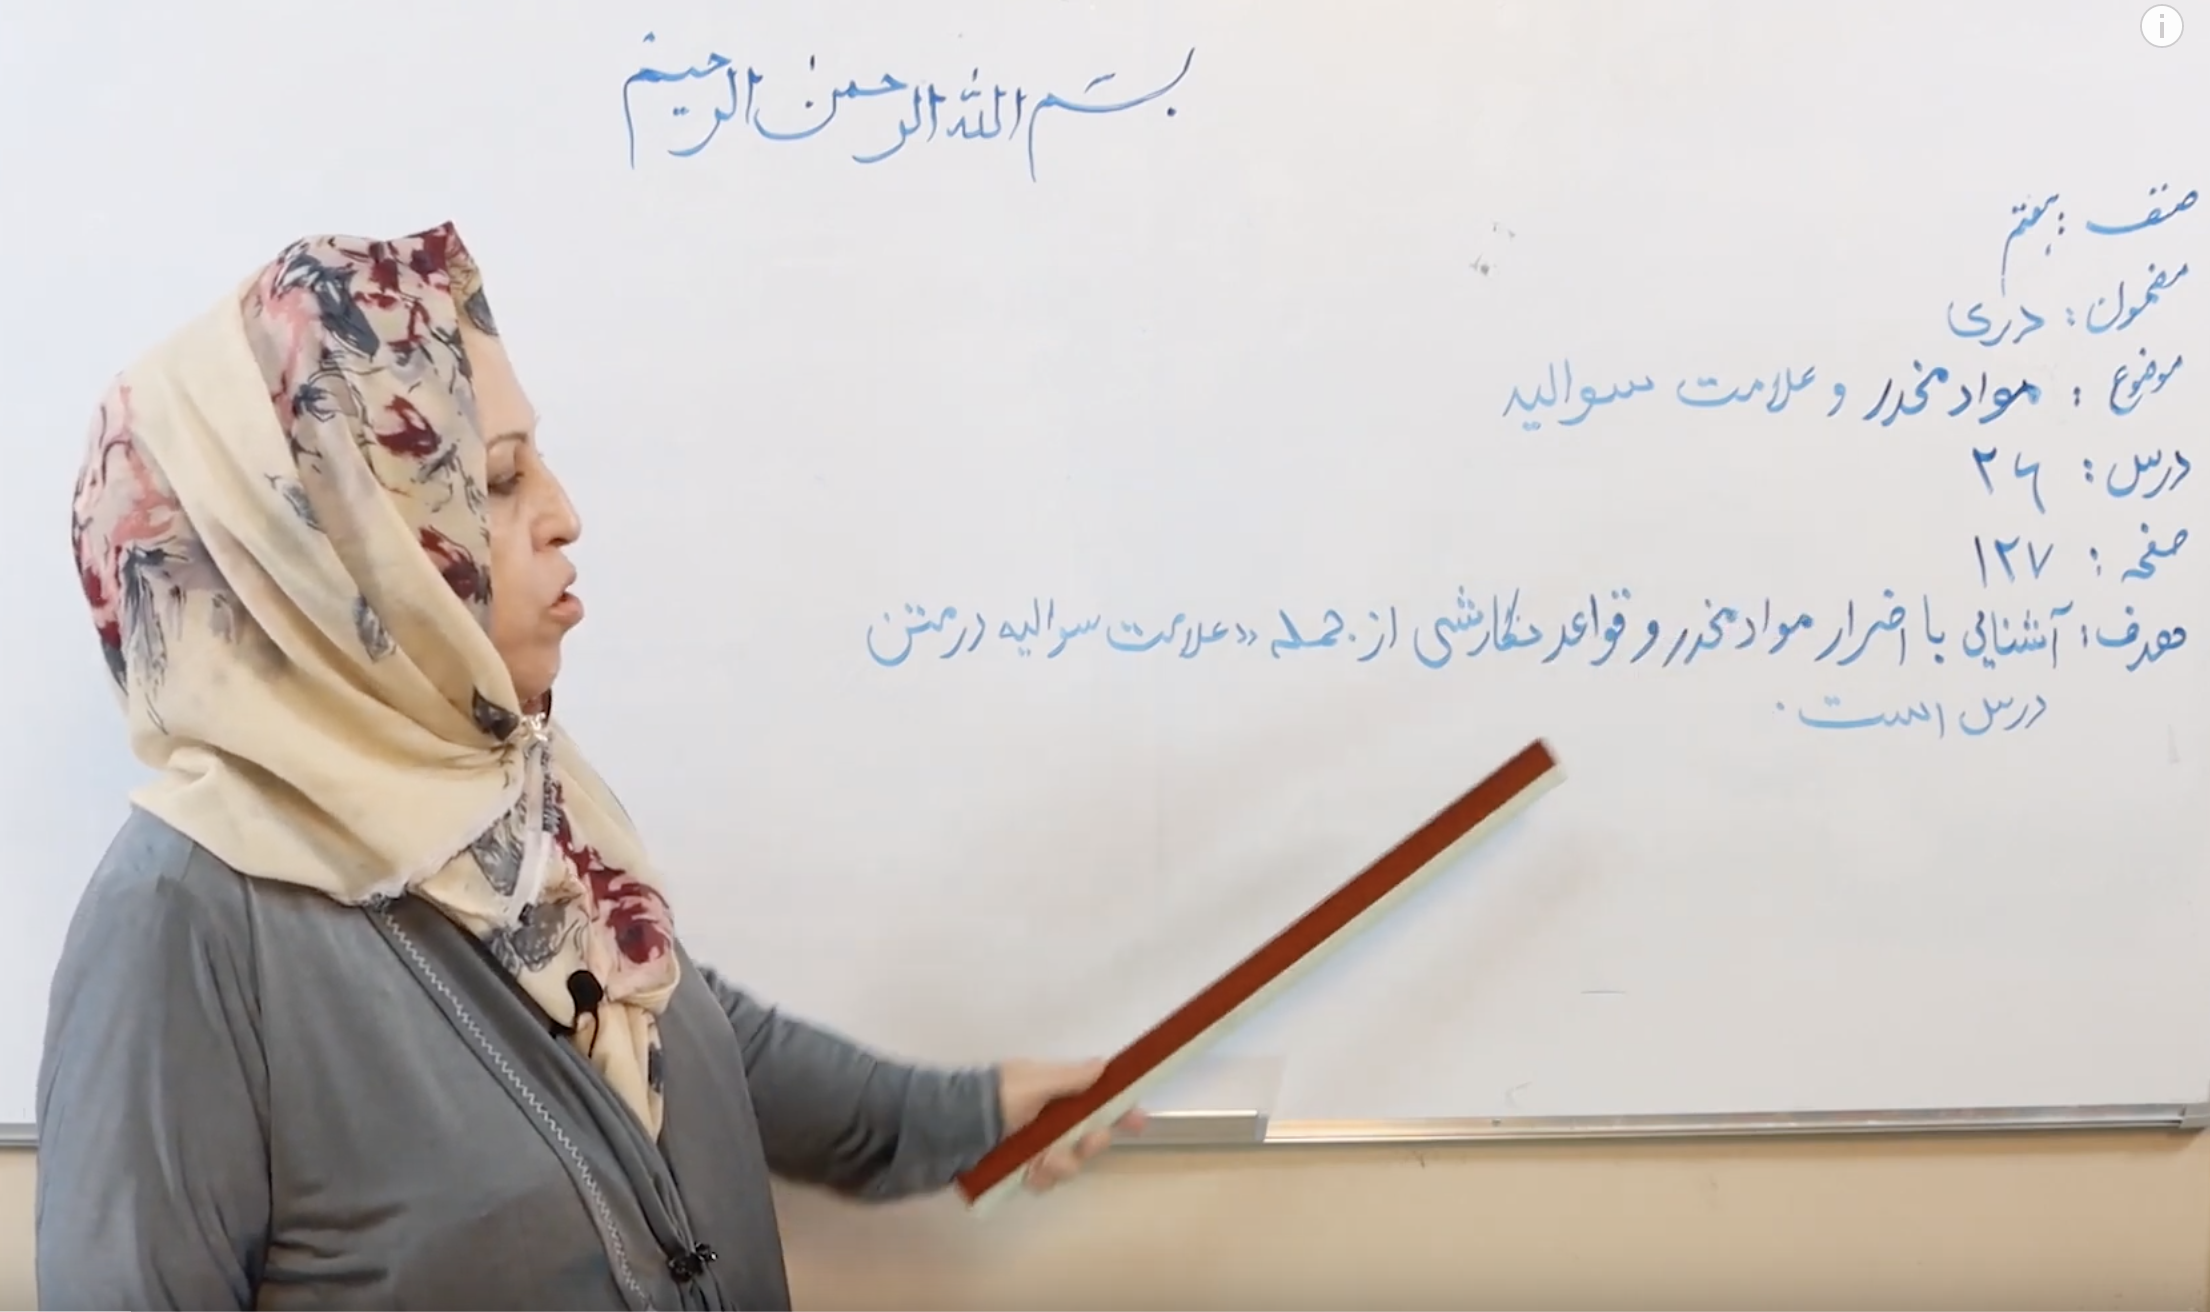 بسم الله الرحمن الرحیم
صنف : هفتم
مضمون : دری
موضوع : مواد مخدر و علامت سوالیه
درس : ۲۶
صفحه : ۱۲۷
هدف : آشنایی با اضرار مواد مخدر و قواعد نگارشی از جمله «علامت سوالیه در متن
درس است .